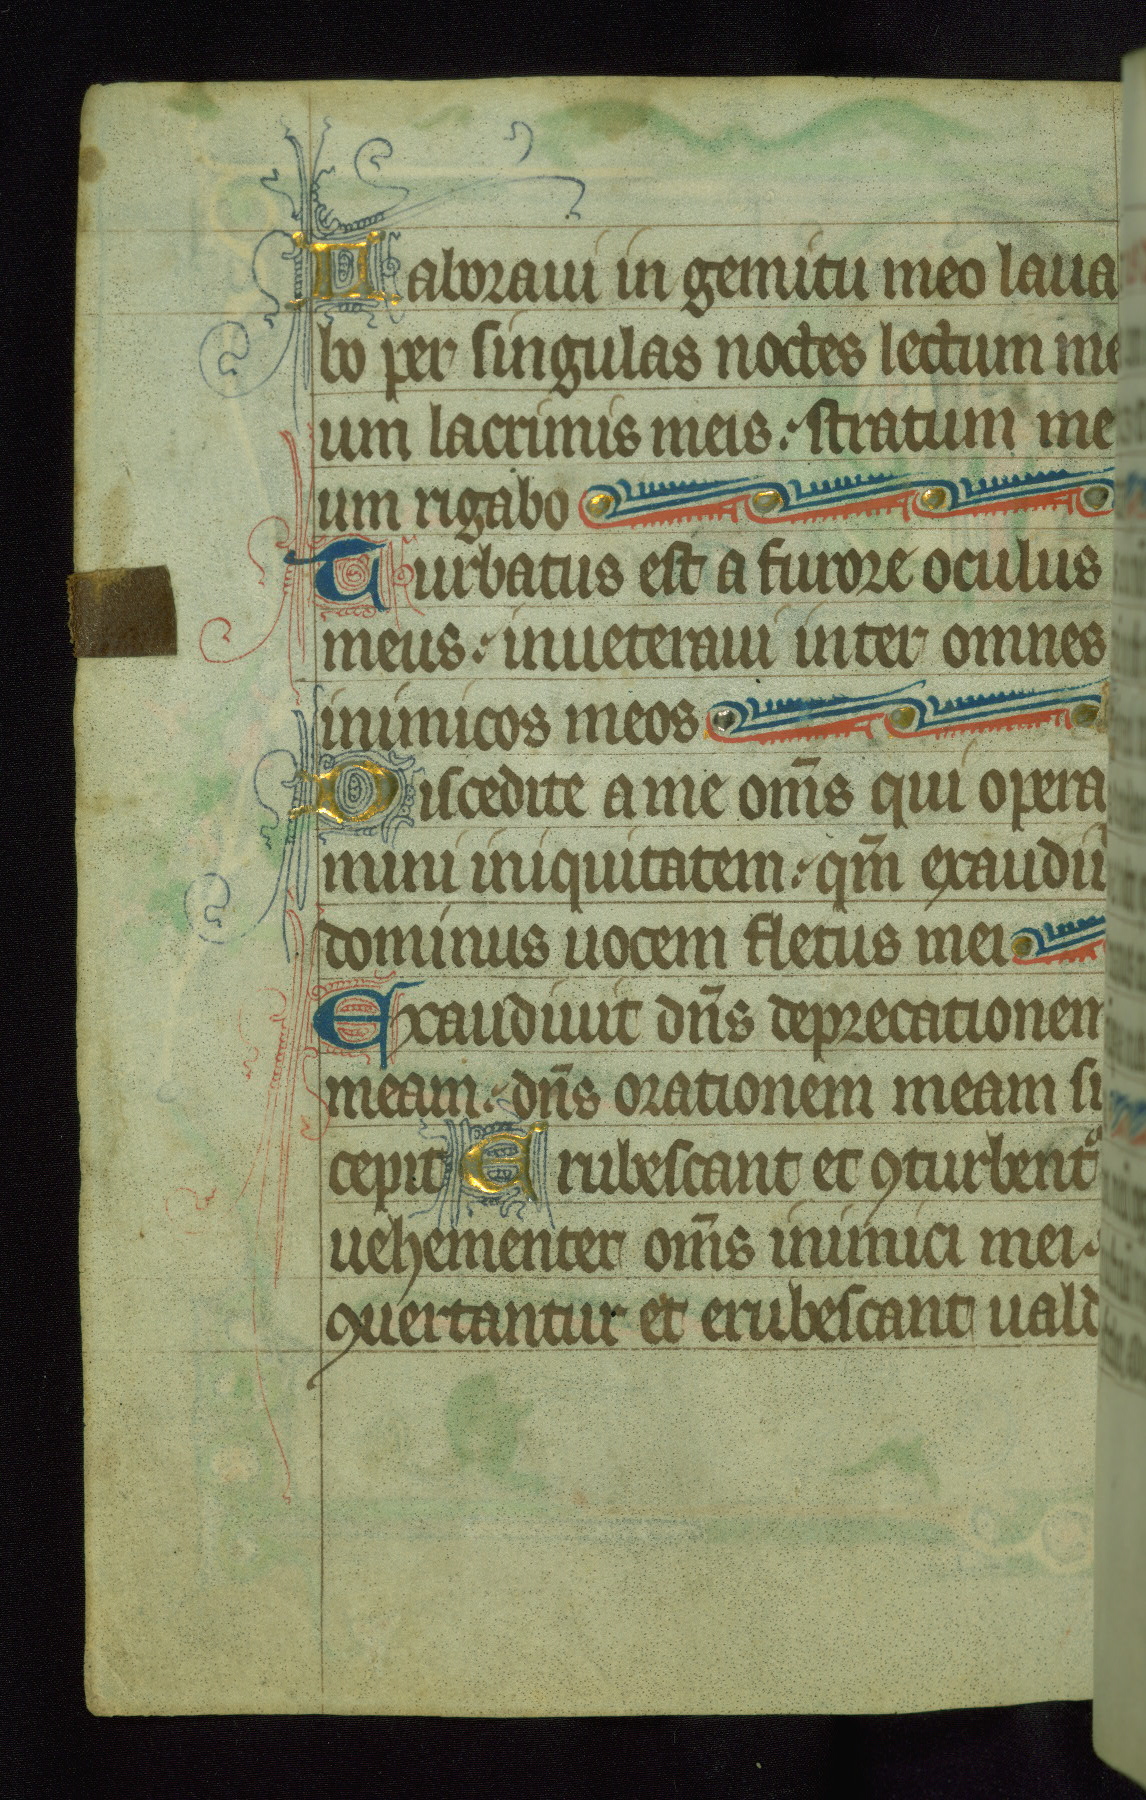 Laboraui in gemitu meo laua
bo per singulas noctes lectum me
um lacrimis meis: stratum me
um rigabo
Turbatus est a furore oculus
meus: inueteraui inter omnes
inimicos meos
Discedite a me om̄s qui opera
mini iniquitatem: qm̄ exaudiu
dominus uocem fletus mei
Exaudiuit dn̄s deprecationem
meam: dn̄s orationem meam su
cepit Erubescant et ꝯturbent᷑
uehementer om̄s inimici mei:
ꝯuertantur et erubescant uald